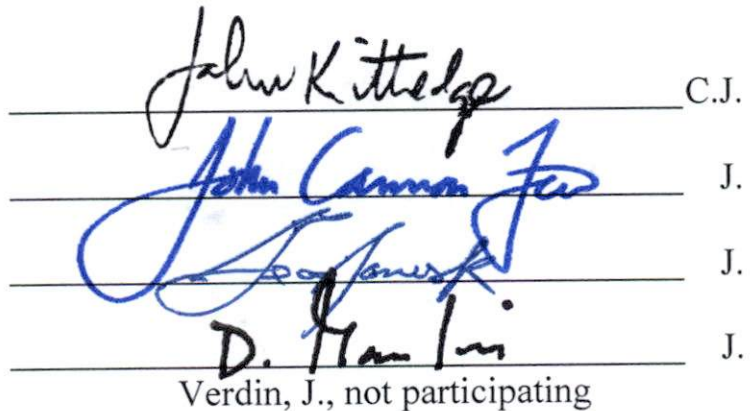 John Kittredge C.J.
John Cannon Few J.
J.
D. J.
Verdin, J., not participating